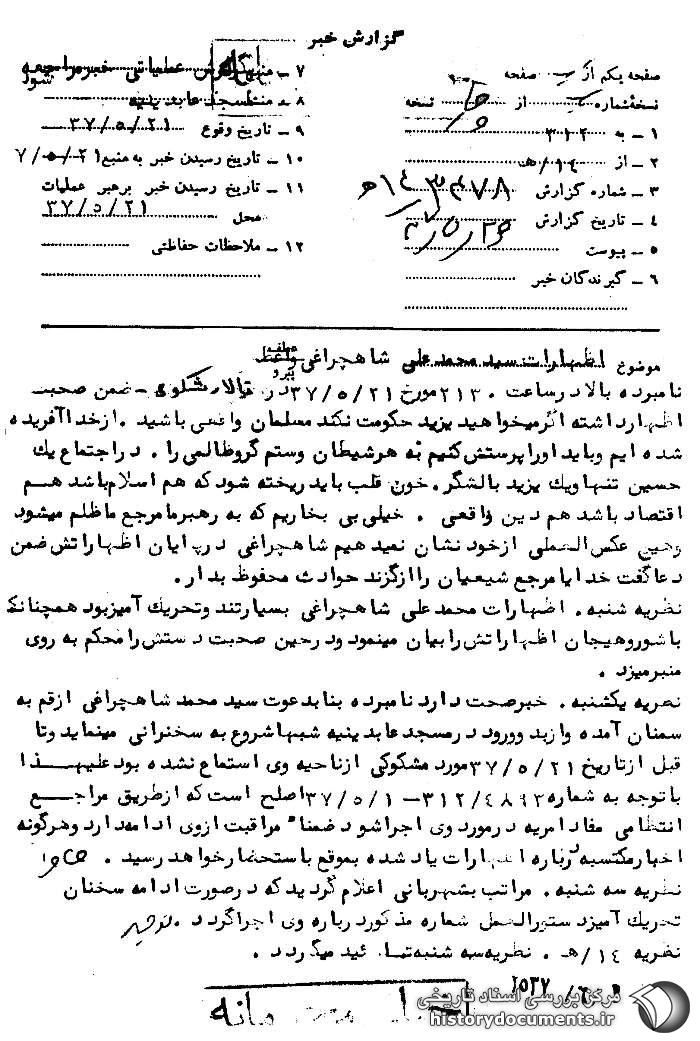 گزارش خبر
صفحه یکم از صفحه
نسخه شماره از نسخه
۱ – به ۳۱۲
۲ – از ۱۴/هـ
۳ – شماره گزارش
۴ – تاریخ گزارش
۵ – پیوست
۶ – گیرندگان خبر
۷ – خبر مراجعه شود
۸ – منشاء مسجد عابدینیه
۹ – تاریخ وقوع ۳۷/۵/۲۱
۱۰ – تاریخ رسیدن خبر به منبع ۳۷/۵/۲۱
۱۱ – تاریخ رسیدن خبر برهبر عملیات
محل ۳۷/۵/۲۱
۱۲ – ملاحظات حفاظتی
موضوع اظهارات سید محمد علی شاهچراغی واعظ
نامبرده بالا در ساعت ۲۱۳۰ مورخ ۳۷/۵/۲۱ در – ضمن صحبت
اظهار داشته اگر میخواهید یزید حکومت نکند مسلمان واقعی باشید . از خدا آفریده
شده ایم و باید او را پرستش کنیم نه هر شیطان و ستم گر و ظالمی را . در اجتماع یک
حسین تنها و یک یزید بالشگر . خون قلب باید ریخته شود که هم اسلام باشد هم
اقتصاد باشد هم دین واقعی . خیلی بی بخاریم که به رهبر ما مرجع ما ظلم میشود
و هیچ عکس العملی از خود نشان نمیدهیم شاهچراغی در پایان اظهاراتش ضمن
دعا گفت خدایا مرجع شیعیان را از گزند حوادث محفوظ بدار .
نظریه شنبه . اظهارات محمد علی شاهچراغی بسیار تند و تحریک آمیز بود همچنانکه
با شور و هیجان اظهاراتش را بیان مینمود و در حین صحبت دستش را محکم به روی
منبر میزد .
نظریه یکشنبه . خبر صحت دارد نامبرده بنا بدعوت سید محمد شاهچراغی از قم به
سمنان آمده و از بدو ورود در مسجد عابدینیه شبها شروع به سخنرانی مینماید و تا
قبل از تاریخ ۳۷/۵/۲۱ مورد مشکوکی از ناحیه وی استماع نشده بود علیهذا
با توجه به شماره ۳۱۲/۴۸۹۳ – ۳۷/۵/۱ اصلح است که از طریق مراجع
انتظامی مفاد امریه در مورد وی اجرا شود ضمنا" مراقبت از وی ادامه دارد و هرگونه
اخبار مکتسبه درباره اظهارات یاد شده بموقع باستحضار خواهد رسید .
نظریه سه شنبه . مراتب بشهربانی اعلام گردید که در صورت ادامه سخنان
تحریک آمیز دستورالعمل شماره مذکور درباره وی اجرا گردد .
نظریه ۱۴/هـ . نظریه سه شنبه تائید میگردد .
مرکز بررسی اسناد تاریخی
historydocuments.ir